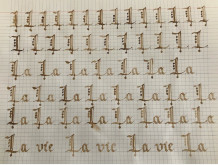 L L L L L L L L L L L L
L L L L L L L L L
La La La La La La La
La La La La La La La La
La La La La La La La La
La vie La vie La vie La